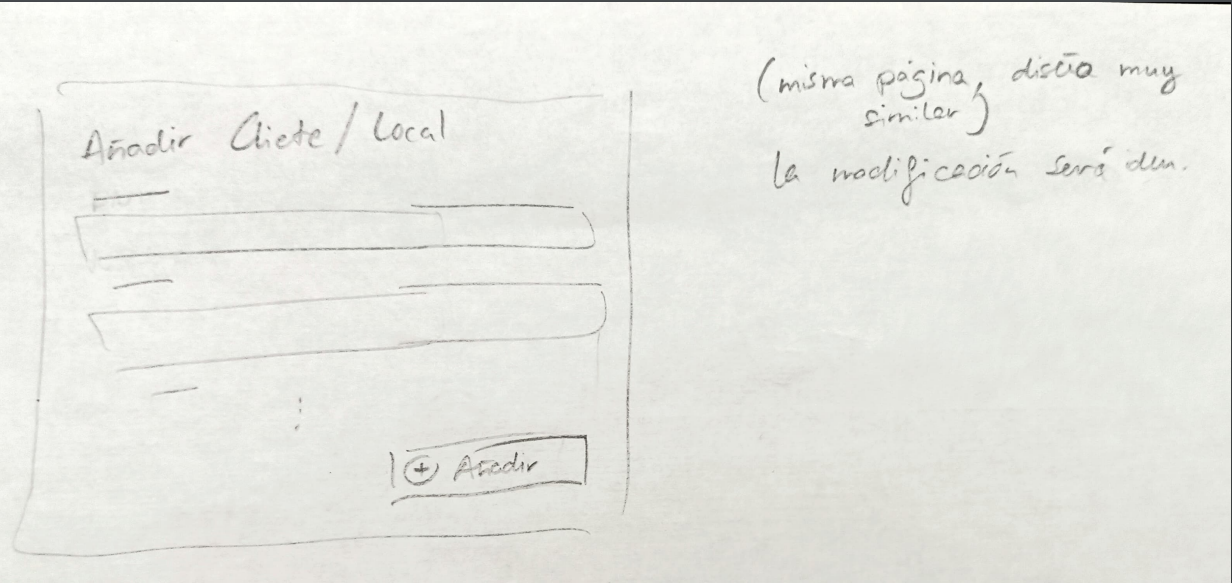 Añadir Cliete / Local
⊕ Añadir
(misma página, diseño muy
similar)
la modificación será idem.